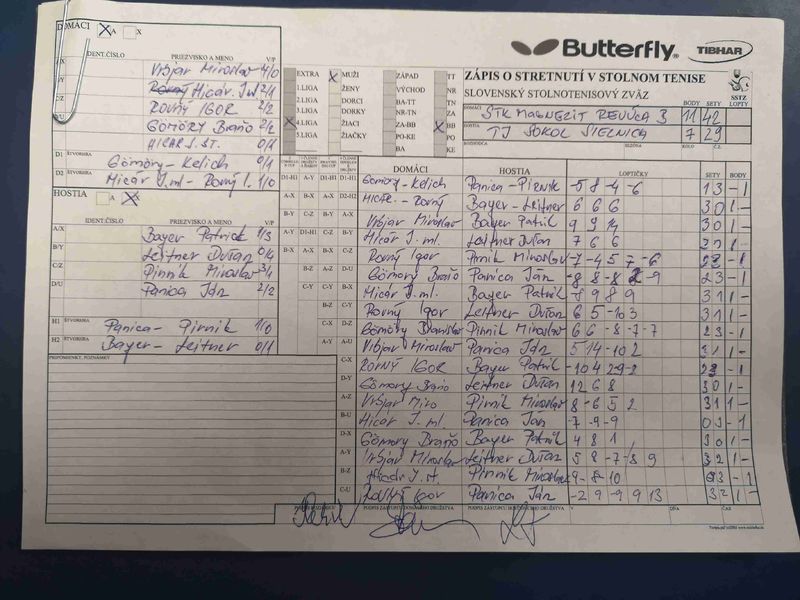 DOMÁCI X A X
IDENT.ČÍSLO PRIEZVISKO A MENO V/P
Vrbjar Miroslav 4/0
Micár J.ml 2/1
ROVNÝ IGOR 2/2
GÖMÖRY Braňo 2/2
MICÁR J. ST. 0/1
D1 ŠTVORHRA Gömöry - Kelich 0/1
D2 ŠTVORHRA Micár J.ml - Rovný I. 1/0
HOSTIA A X
IDENT.ČÍSLO PRIEZVISKO A MENO V/P
A/X Bayer Patrick 1/3
B/Y Leitner Dušan 0/4
C/Z Pirník Miroslav 3/1
D/U Panica Ján 2/2
H1 ŠTVORHRA Panica - Pirník 1/0
H2 ŠTVORHRA Bayer - Leitner 0/1
PRIPOMIENKY, POZNÁMKY
EXTRA X MUŽI ZÁPAD TT
1.LIGA ŽENY VÝCHOD NR
2.LIGA DORCI BA-TT TN
3.LIGA DORKY NR-TN ZA
X 4.LIGA ŽIACI ZA-BB X BB
5.LIGA ŽIAČKY PO-KE PO
BA KE
Butterfly TIBHAR
ZÁPIS O STRETNUTÍ V STOLNOM TENISE
SLOVENSKÝ STOLNOTENISOVÝ ZVÄZ
SSTZ
BODY SETY LOPTY
DOMÁCI STK MAGNEZIT REVÚCA B 11 42
HOSTIA TJ SOKOL SIELNICA 7 29
ROZHODCA SEZÓNA KOLO Č.Z.
DOMÁCI HOSTIA LOPTIČKY SETY BODY
D1-H1 A-Y D1-H1 Gömöry - Kelich Panica - Pirník -5 8 -4 -6 1 3 - 1
A-X B-X D2-H2 Micár - Rovný Bayer - Leitner 6 6 6 3 0 1 -
B-Y C-Z B-Y Vrbjar Miroslav Bayer Patrik 9 9 14 3 0 1 -
A-Y D1-H1 C-Z Micár J. ml. Leitner Dušan 7 6 6
B-X A-X Rovný Igor Pirník Miroslav -7 -4 5 7 -6 - 1
B-Z A-Z D-U Gömöry Braňo Panica Ján 2 3 - 1
C-Y Micár J.ml. Bayer Patrik -8 9 8 9 3 1 1 -
B-Z Rovný Igor Leitner Dušan 6 5 -10 3 3 1 1 -
C-X Gömöry Branislav Pirník Miroslav 6 6 -8 -7 -7 2 3 - 1
A-Y Vrbjar Miroslav Panica Ján 5 14 -10 2 3 1 1 -
C-X ROVNÝ IGOR Bayer Patrik
D-Y Gömöry Braňo Leitner Dušan 12 6 8 3 0 1 -
A-Z Vrbjar Miro Pirník Miroslav 8 -6 5 2 3 1 1 -
B-U Micár J. ml. Panica Ján -7 -9 -9 0 3 - 1
D-X Gömöry Braňo Bayer Patrik 4 8 1 3 0 1 -
A-Y Vrbjar Miroslav Leitner Dušan 5 8 -7 -8 9 3 2 1 -
B-Z Micár J. st. Pirník Miroslav -9 -8 -10 - 1
C-U Rovný Igor Panica Ján -2 9 -9 9 13 3 2 1 -
PODPIS ZÁSTUPCU DOMÁCEHO DRUŽSTVA PODPIS ZÁSTUPCU HOSŤUJÚCEHO DRUŽSTVA V DŇA ČAS